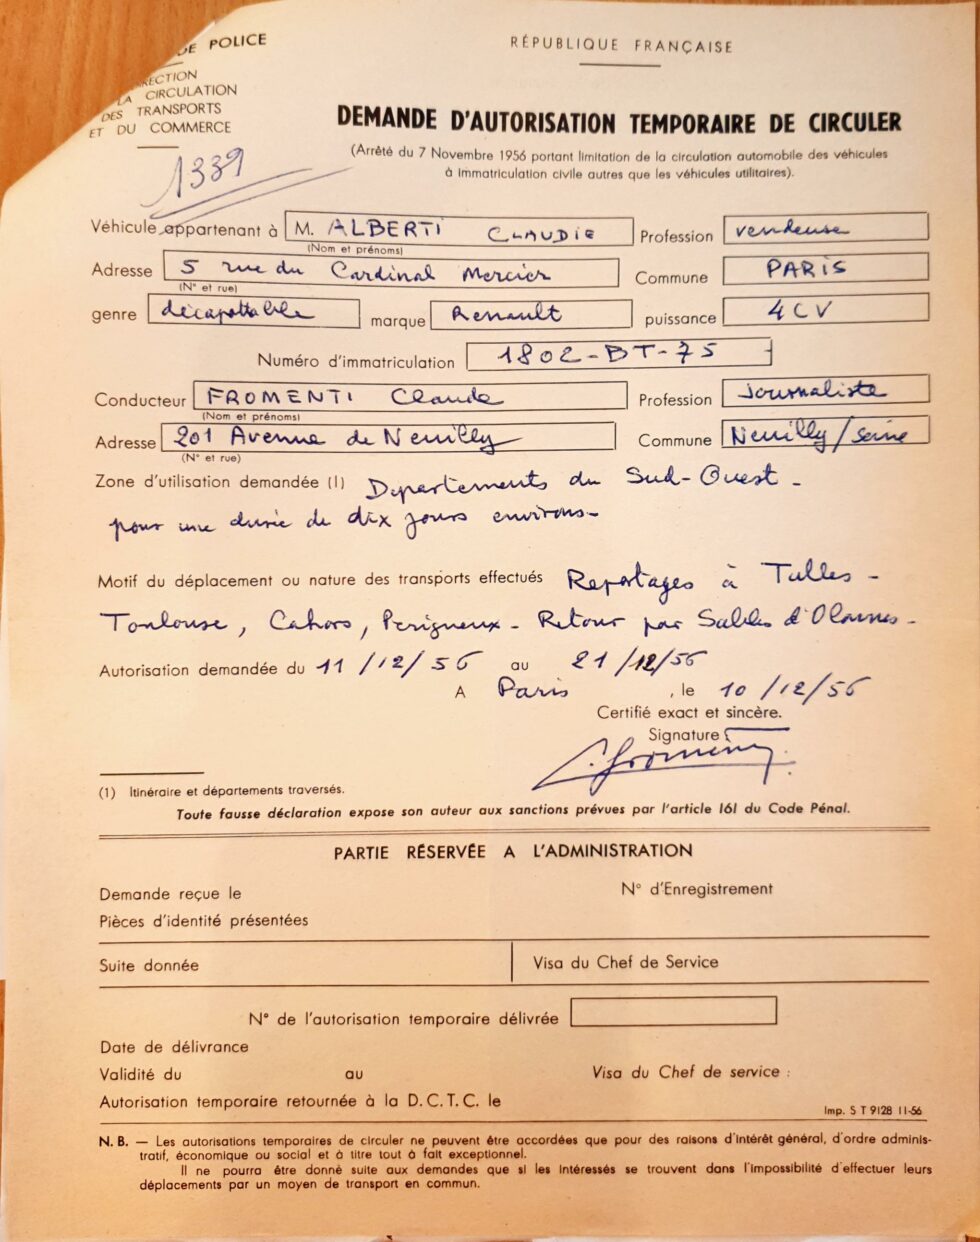 DE POLICE
RÉPUBLIQUE FRANÇAISE
LA CIRCULATION
DES TRANSPORTS
ET DU COMMERCE
1339
DEMANDE D'AUTORISATION TEMPORAIRE DE CIRCULER
(Arrêté du 7 Novembre 1956 portant limitation de la circulation automobile des véhicules
à immatriculation civile autres que les véhicules utilitaires).
Véhicule appartenant à M. ALBERTI CLAUDIE Profession vendeuse
(Nom et prénoms)
Adresse 5 rue du Cardinal Mercier Commune PARIS
(N° et rue)
genre décapottable marque Renault puissance 4CV
Numéro d'immatriculation 1802-BT-75
Conducteur FROMENTI Claude Profession Journaliste
(Nom et prénoms)
Adresse 201 Avenue de Neuilly Commune Neuilly/Seine
(N° et rue)
Zone d'utilisation demandée (1) Départements du Sud-Ouest -
pour une durée de dix jours environs-
Motif du déplacement ou nature des transports effectués Reportages à Tulles -
Toulouse, Cahors, Perigueux - Retour par Sables d'Olonnes -
Autorisation demandée du 11/12/56 au 21/12/56
A Paris, le 10/12/56
Certifié exact et sincère.
Signature
(1) Itinéraire et départements traversés.
Toute fausse déclaration expose son auteur aux sanctions prévues par l'article 161 du Code Pénal.
PARTIE RÉSERVÉE A L'ADMINISTRATION
Demande reçue le N° d'Enregistrement
Pièces d'identité présentées
Suite donnée Visa du Chef de Service
N° de l'autorisation temporaire délivrée
Date de délivrance
Validité du au Visa du Chef de service :
Autorisation temporaire retournée à la D.C.T.C. le
Imp. S T 9128 11-56
N. B. — Les autorisations temporaires de circuler ne peuvent être accordées que pour des raisons d'intérêt général, d'ordre adminis-
tratif, économique ou social et à titre tout à fait exceptionnel.
Il ne pourra être donné suite aux demandes que si les intéressés se trouvent dans l'impossibilité d'effectuer leurs
déplacements par un moyen de transport en commun.